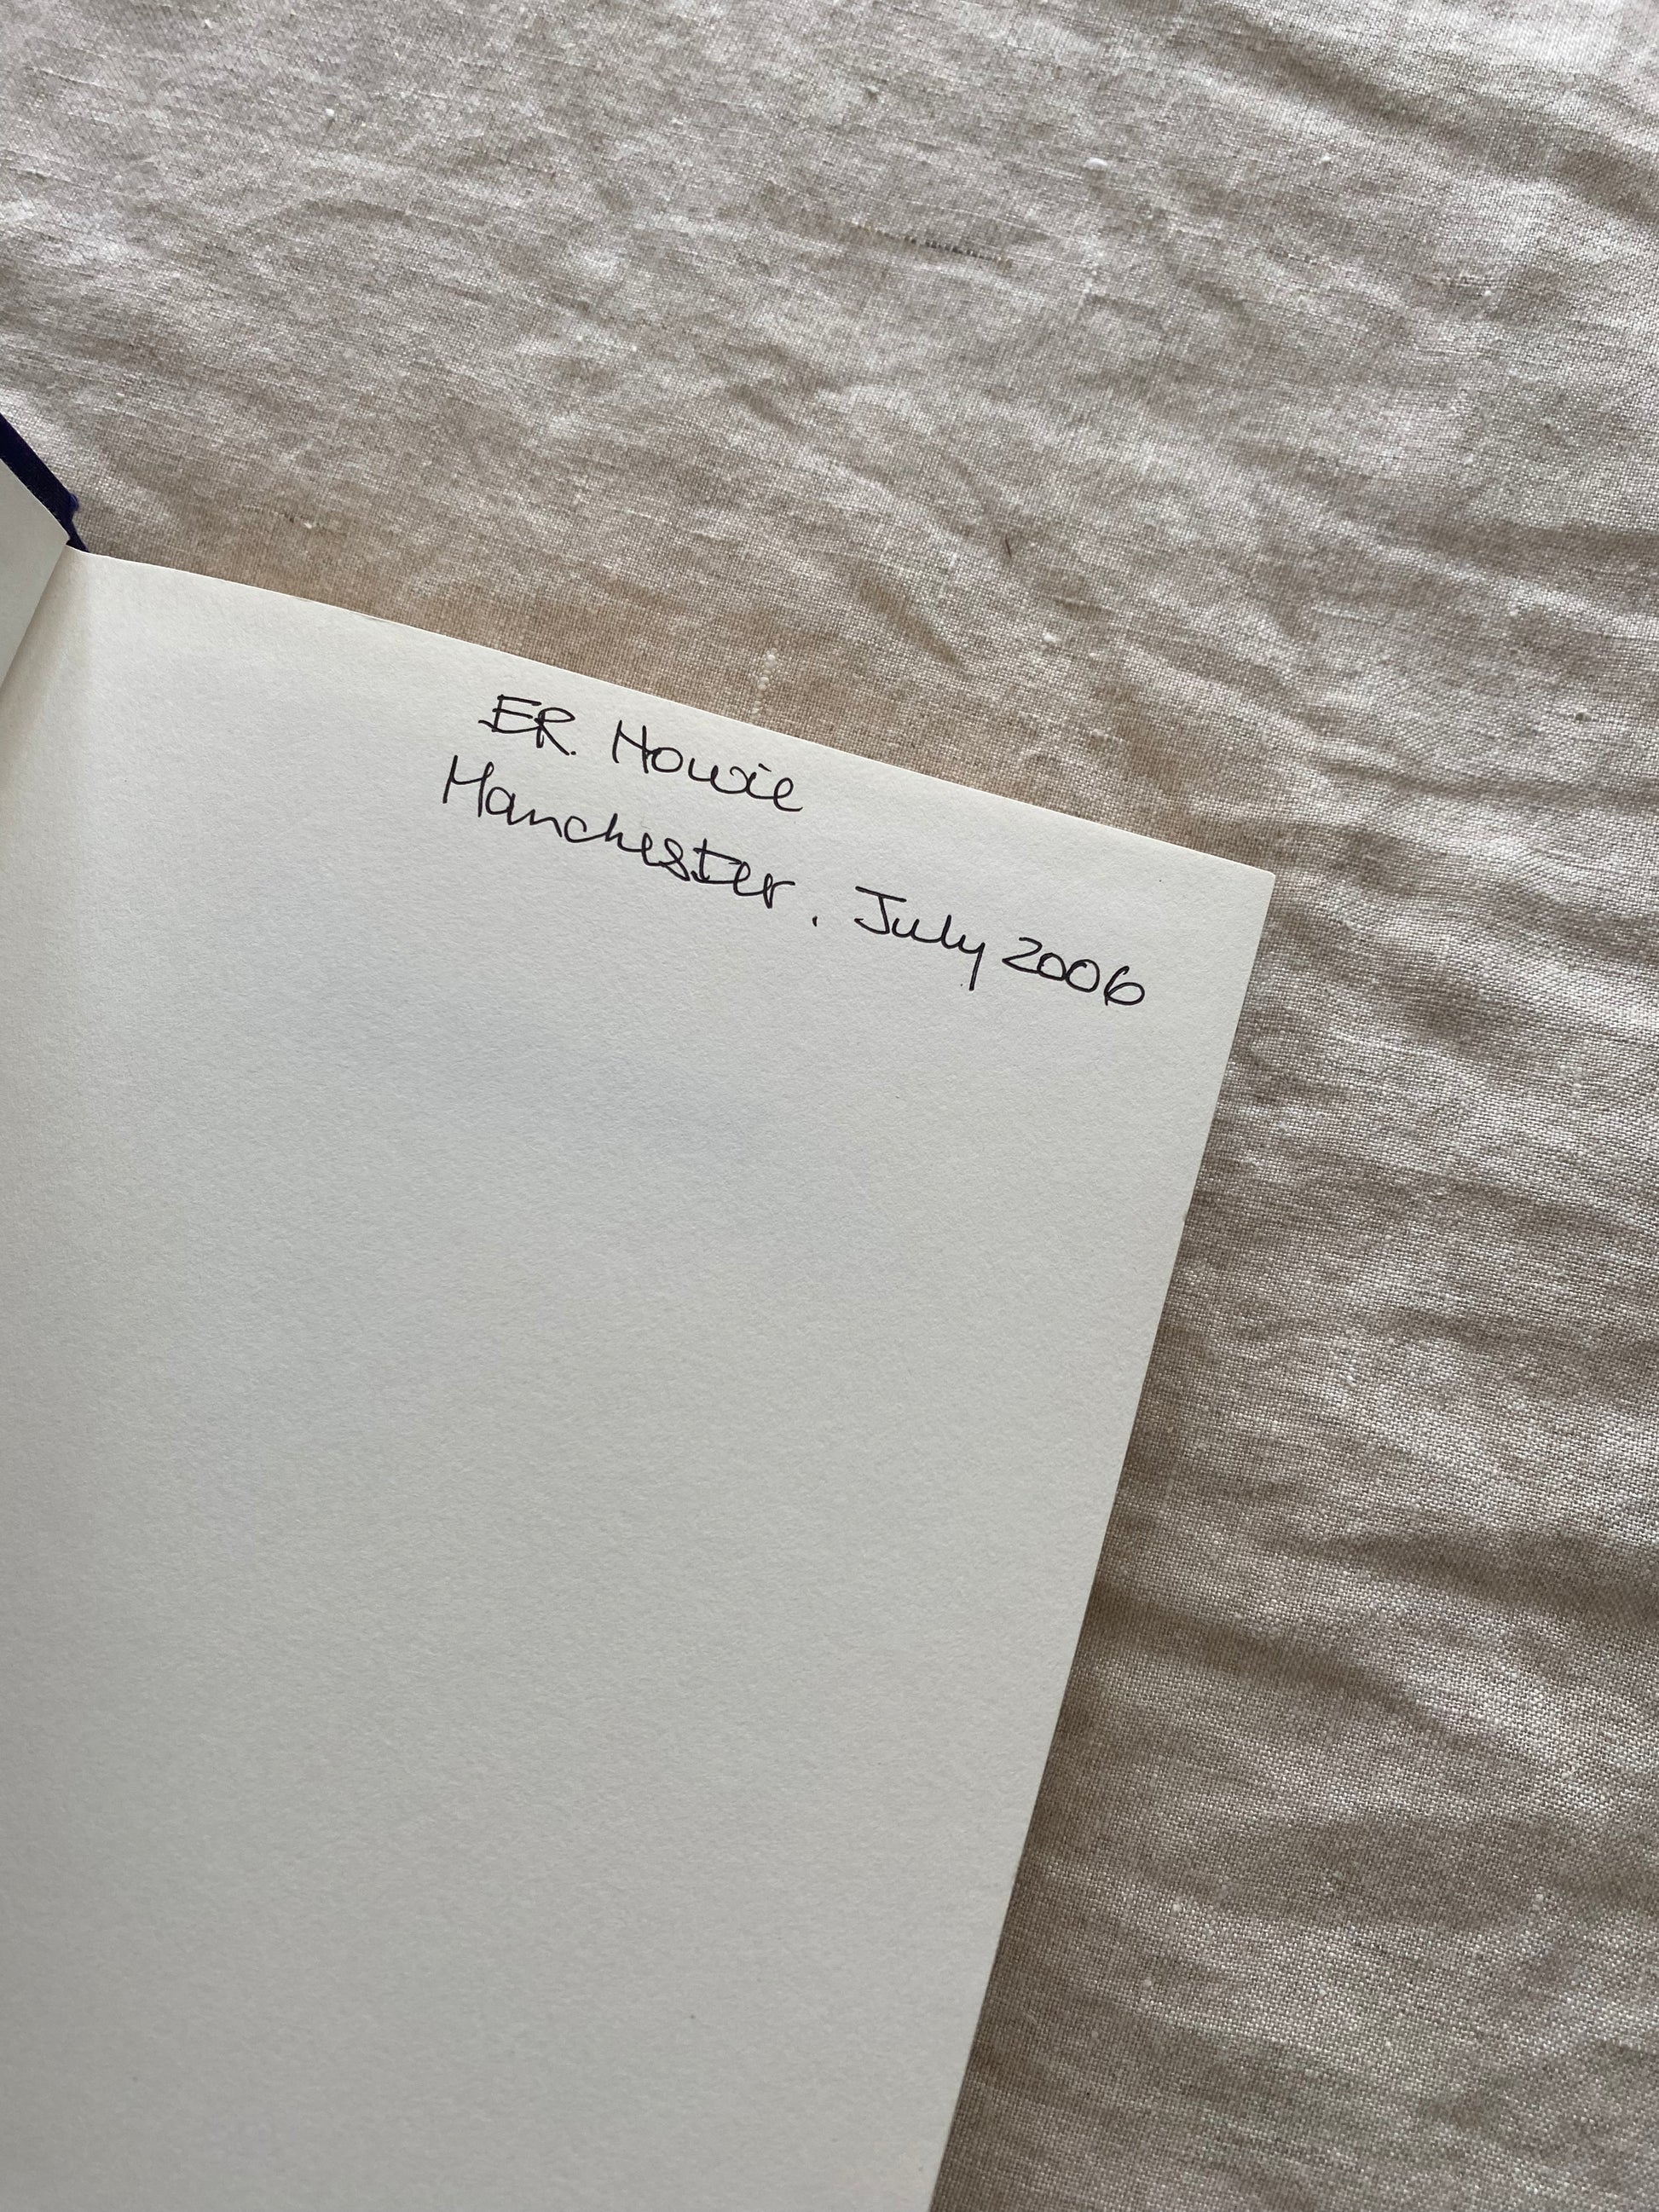 ER. Howie
Manchester. July 2006